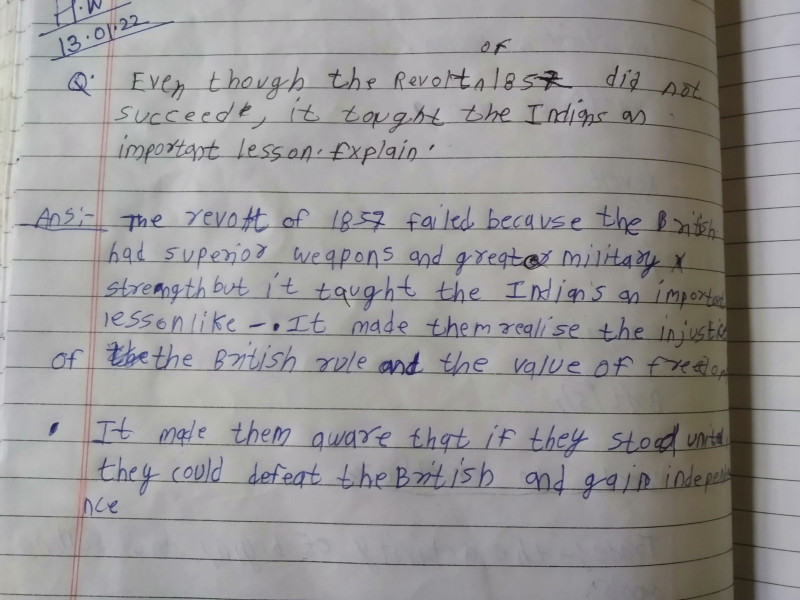 H.W
13.01.22
Q. Even though the Revolt of 1857 did not
succeed, it taught the Indians an
important lesson. Explain.
Ans:- The revolt of 1857 failed because the British
had superior weapons and greater military
strength but it taught the Indian's an important
lesson like -. It made them realise the injustice
of the the British rule and the value of freedom
• It made them aware that if they stood united
they could defeat the British and gain indepen
nce